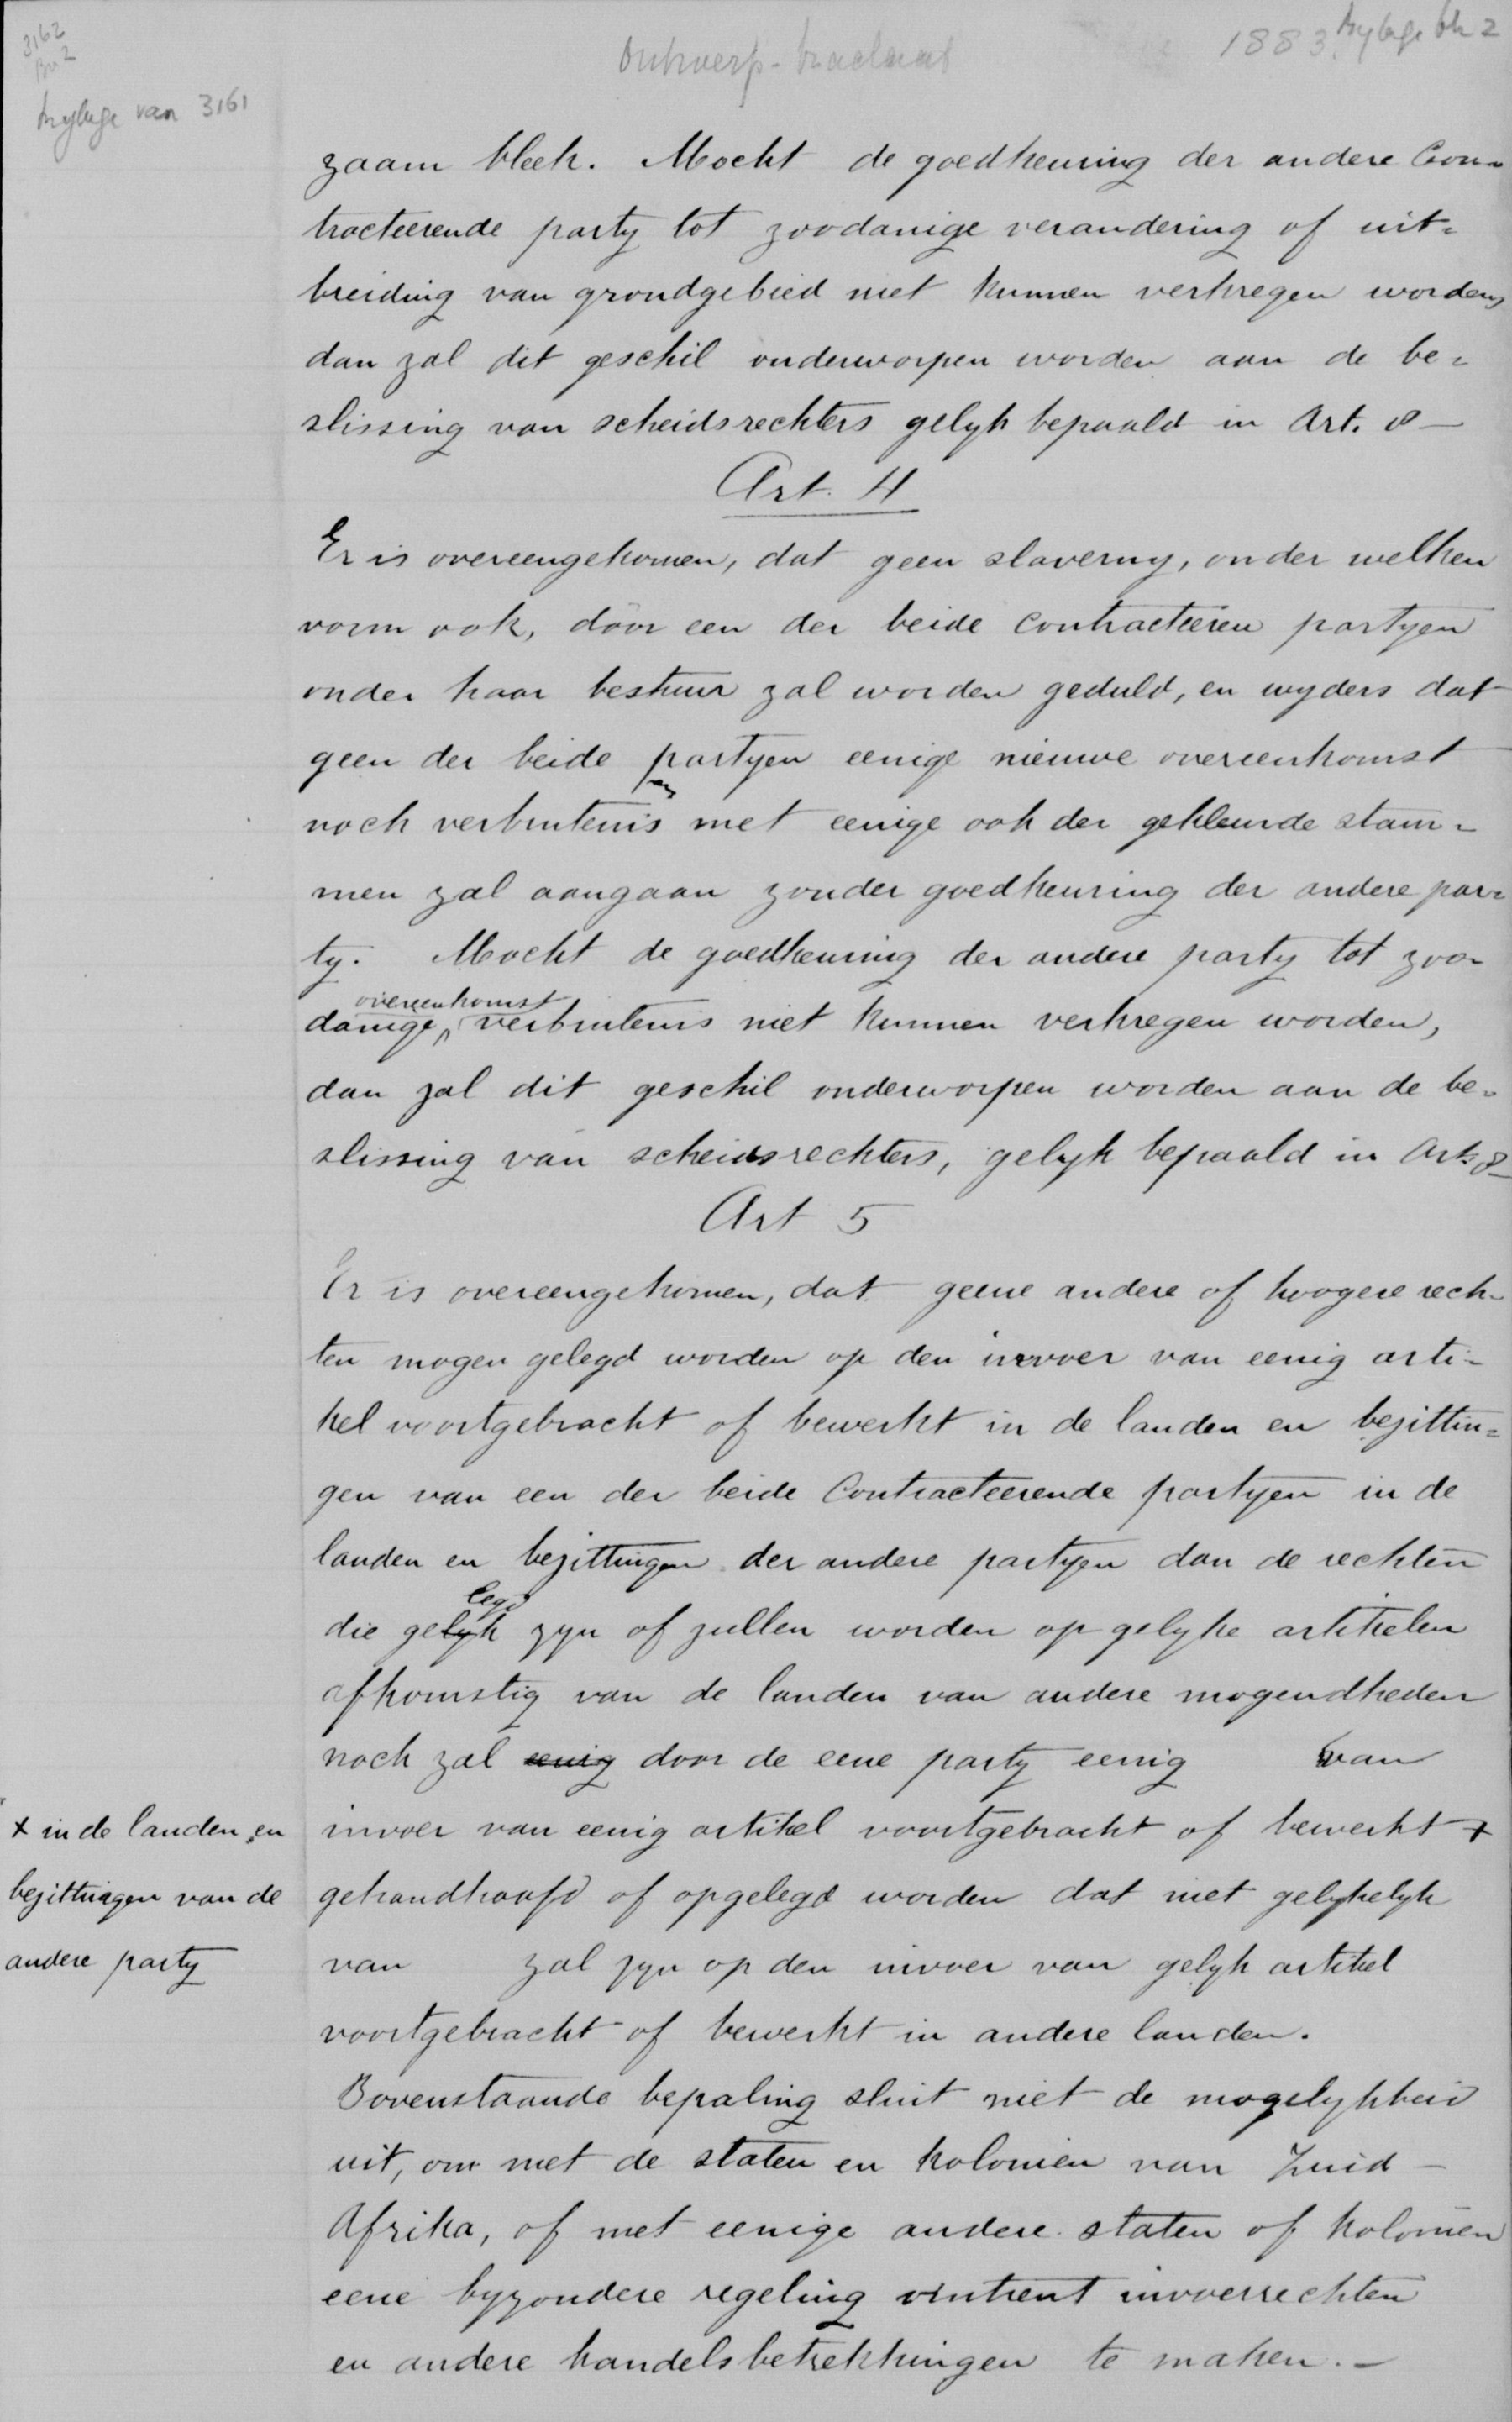 3162
Bn 2
Bylage van 3161
Ontwerp-tractaat
1883. Bylage bh 2
zaam bleek. Mocht de goedkeuring der andere Con-
tracteerende party tot zoodanige verandering of uit-
breiding van grondgebied niet kunnen verkregen worden,
dan zal dit geschil onderworpen worden aan de be-
slissing van scheidsrechters gelyk bepaald in Art. 8 —
Art. 4
Er is overeengekomen, dat geen slaverny, onder welken
vorm ook, door een der beide contracteeren partyen
onder haar bestuur zal worden geduld, en wyders dat
geen der beide partyen eenige nieuwe overeenkomst
noch verbintenis met eenige ook der gekleurde stam-
men zal aangaan zonder goedkeuring der andere par-
ty. Mocht de goedkeuring der andere party tot zoo-
overeenkomst
danige, verbintenis niet kunnen verkregen worden,
dan zal dit geschil onderworpen worden aan de be-
slissing van scheidsrechters, gelyk bepaald in Art. 8 —
Art 5
Er is overeengekomen, dat geene andere of hoogere rech-
ten mogen gelegd worden op den invoer van eenig arti-
kel voortgebracht of bewerkt in de landen en bezittin-
gen van een der beide Contracteerende partyen in de
landen en bezittingen der andere partyen dan de rechten
legd
die gelyk zyn of zullen worden op gelyke artikelen
afkomstig van de landen van andere mogendheden
noch zal eenig door de eene party eenig van
invoer van eenig artikel voortgebracht of bewerkt +
gehandhaafd of opgelegd worden dat niet gelykelyk
van zal zyn op den invoer van gelyk artikel
voortgebracht of bewerkt in andere landen.
+ in de landen en
bezittingen van de
andere party
Bovenstaande bepaling sluit niet de mogelykheid
uit, om met de staten en kolonien van Zuid-
Afrika, of met eenige andere staten of kolonien
eene byzondere regeling omtrent invoerrechten
en andere handelsbetrekkingen te maken. —